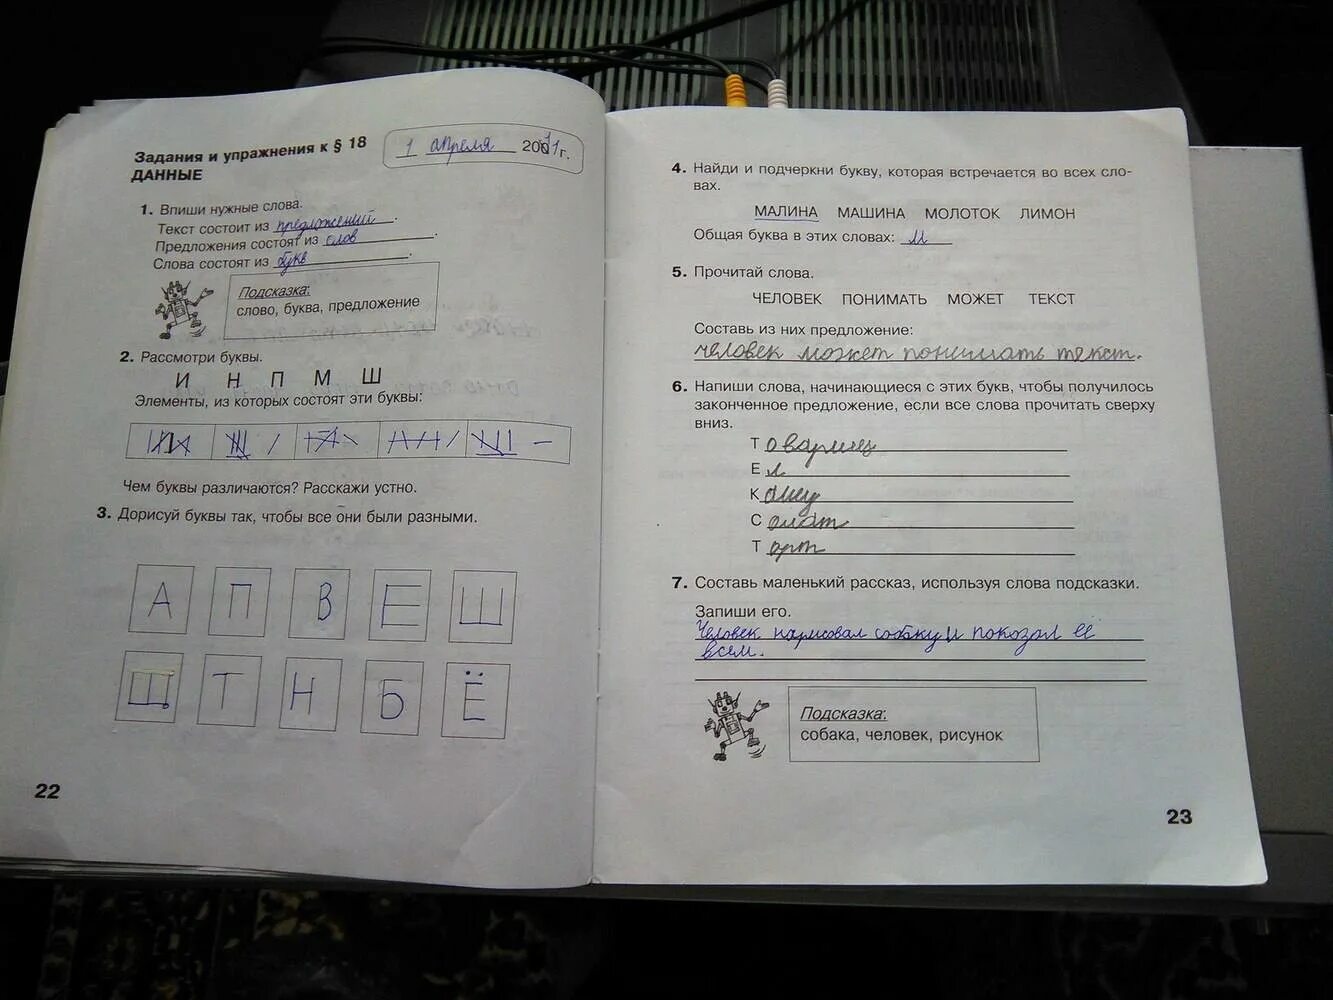 Задания и упражнения к § 18
ДАННЫЕ
1 апреля 2001 г.
1. Впиши нужные слова.
Текст состоит из предложений.
Предложения состоят из слов.
Слова состоят из букв.
Подсказка:
слово, буква, предложение
2. Рассмотри буквы.
И Н П М Ш
Элементы, из которых состоят эти буквы:
Чем буквы различаются? Расскажи устно.
3. Дорисуй буквы так, чтобы все они были разными.
А П В Е Ш
Щ Т Н Б Ё
22
4. Найди и подчеркни букву, которая встречается во всех сло-
вах.
МАЛИНА МАШИНА МОЛОТОК ЛИМОН
Общая буква в этих словах: м
5. Прочитай слова.
ЧЕЛОВЕК ПОНИМАТЬ МОЖЕТ ТЕКСТ
Составь из них предложение:
человек может понимать текст.
6. Напиши слова, начинающиеся с этих букв, чтобы получилось
законченное предложение, если все слова прочитать сверху
вниз.
Т оварищ
Е л
К ашу
С алат
Т орт
7. Составь маленький рассказ, используя слова подсказки.
Запиши его.
Человек нарисовал собаку и показал её
всем.
Подсказка:
собака, человек, рисунок
23